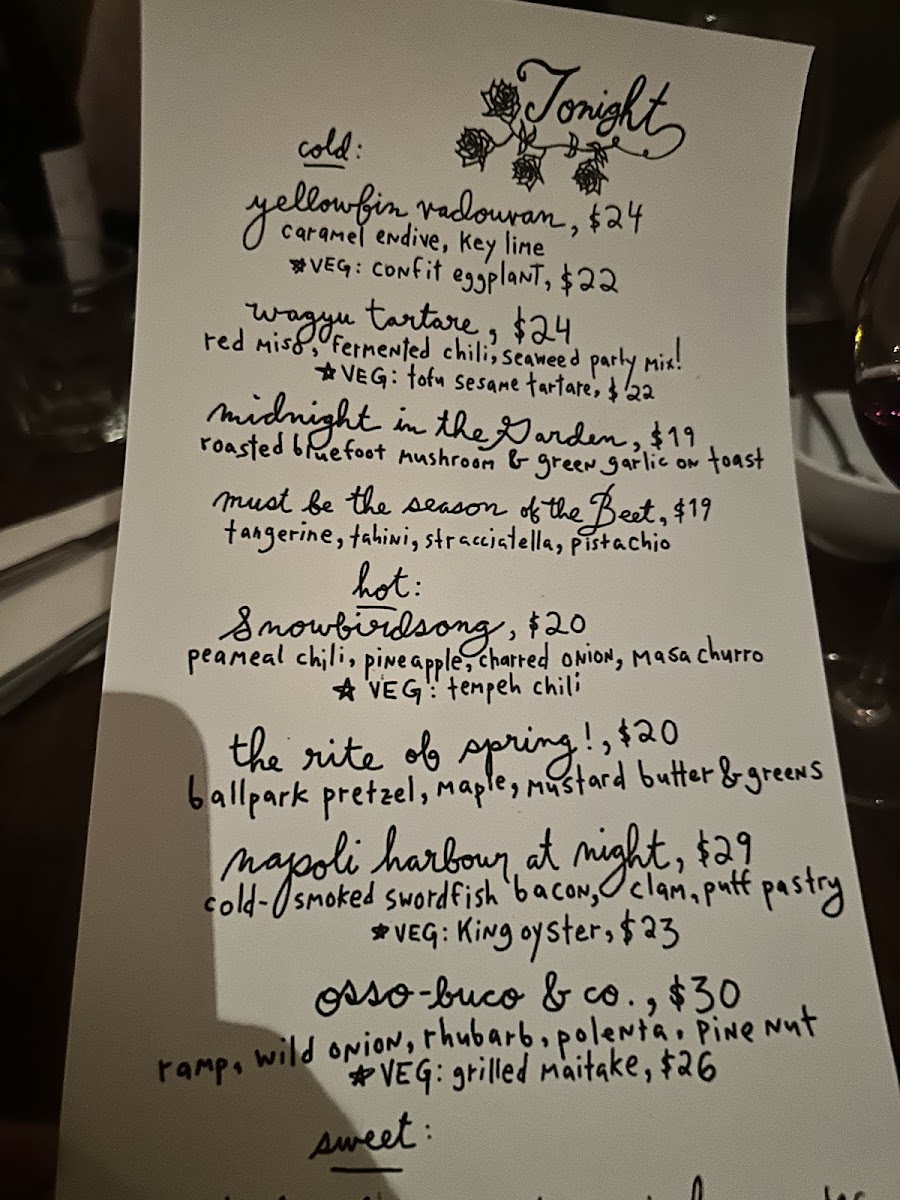 Tonight
cold:
yellowfin vadouvan, $24
caramel endive, key lime
★VEG: confit eggplant, $22
wagyu tartare, $24
red miso, fermented chili, seaweed party mix!
★VEG: tofu sesame tartare, $22
midnight in the Garden, $19
roasted bluefoot mushroom & green garlic on toast
must be the season of the Beet, $19
tangerine, tahini, stracciatella, pistachio
hot:
Snowbirdsong, $20
peameal chili, pineapple, charred onion, masa churro
★ VEG: tempeh chili
the rite of spring!, $20
ballpark pretzel, maple, mustard butter & greens
napoli harbour at night, $29
cold-smoked swordfish bacon, clam, puff pastry
★VEG: King oyster, $23
osso-buco & co., $30
ramp, wild onion, rhubarb, polenta, pine nut
★VEG: grilled maitake, $26
sweet: